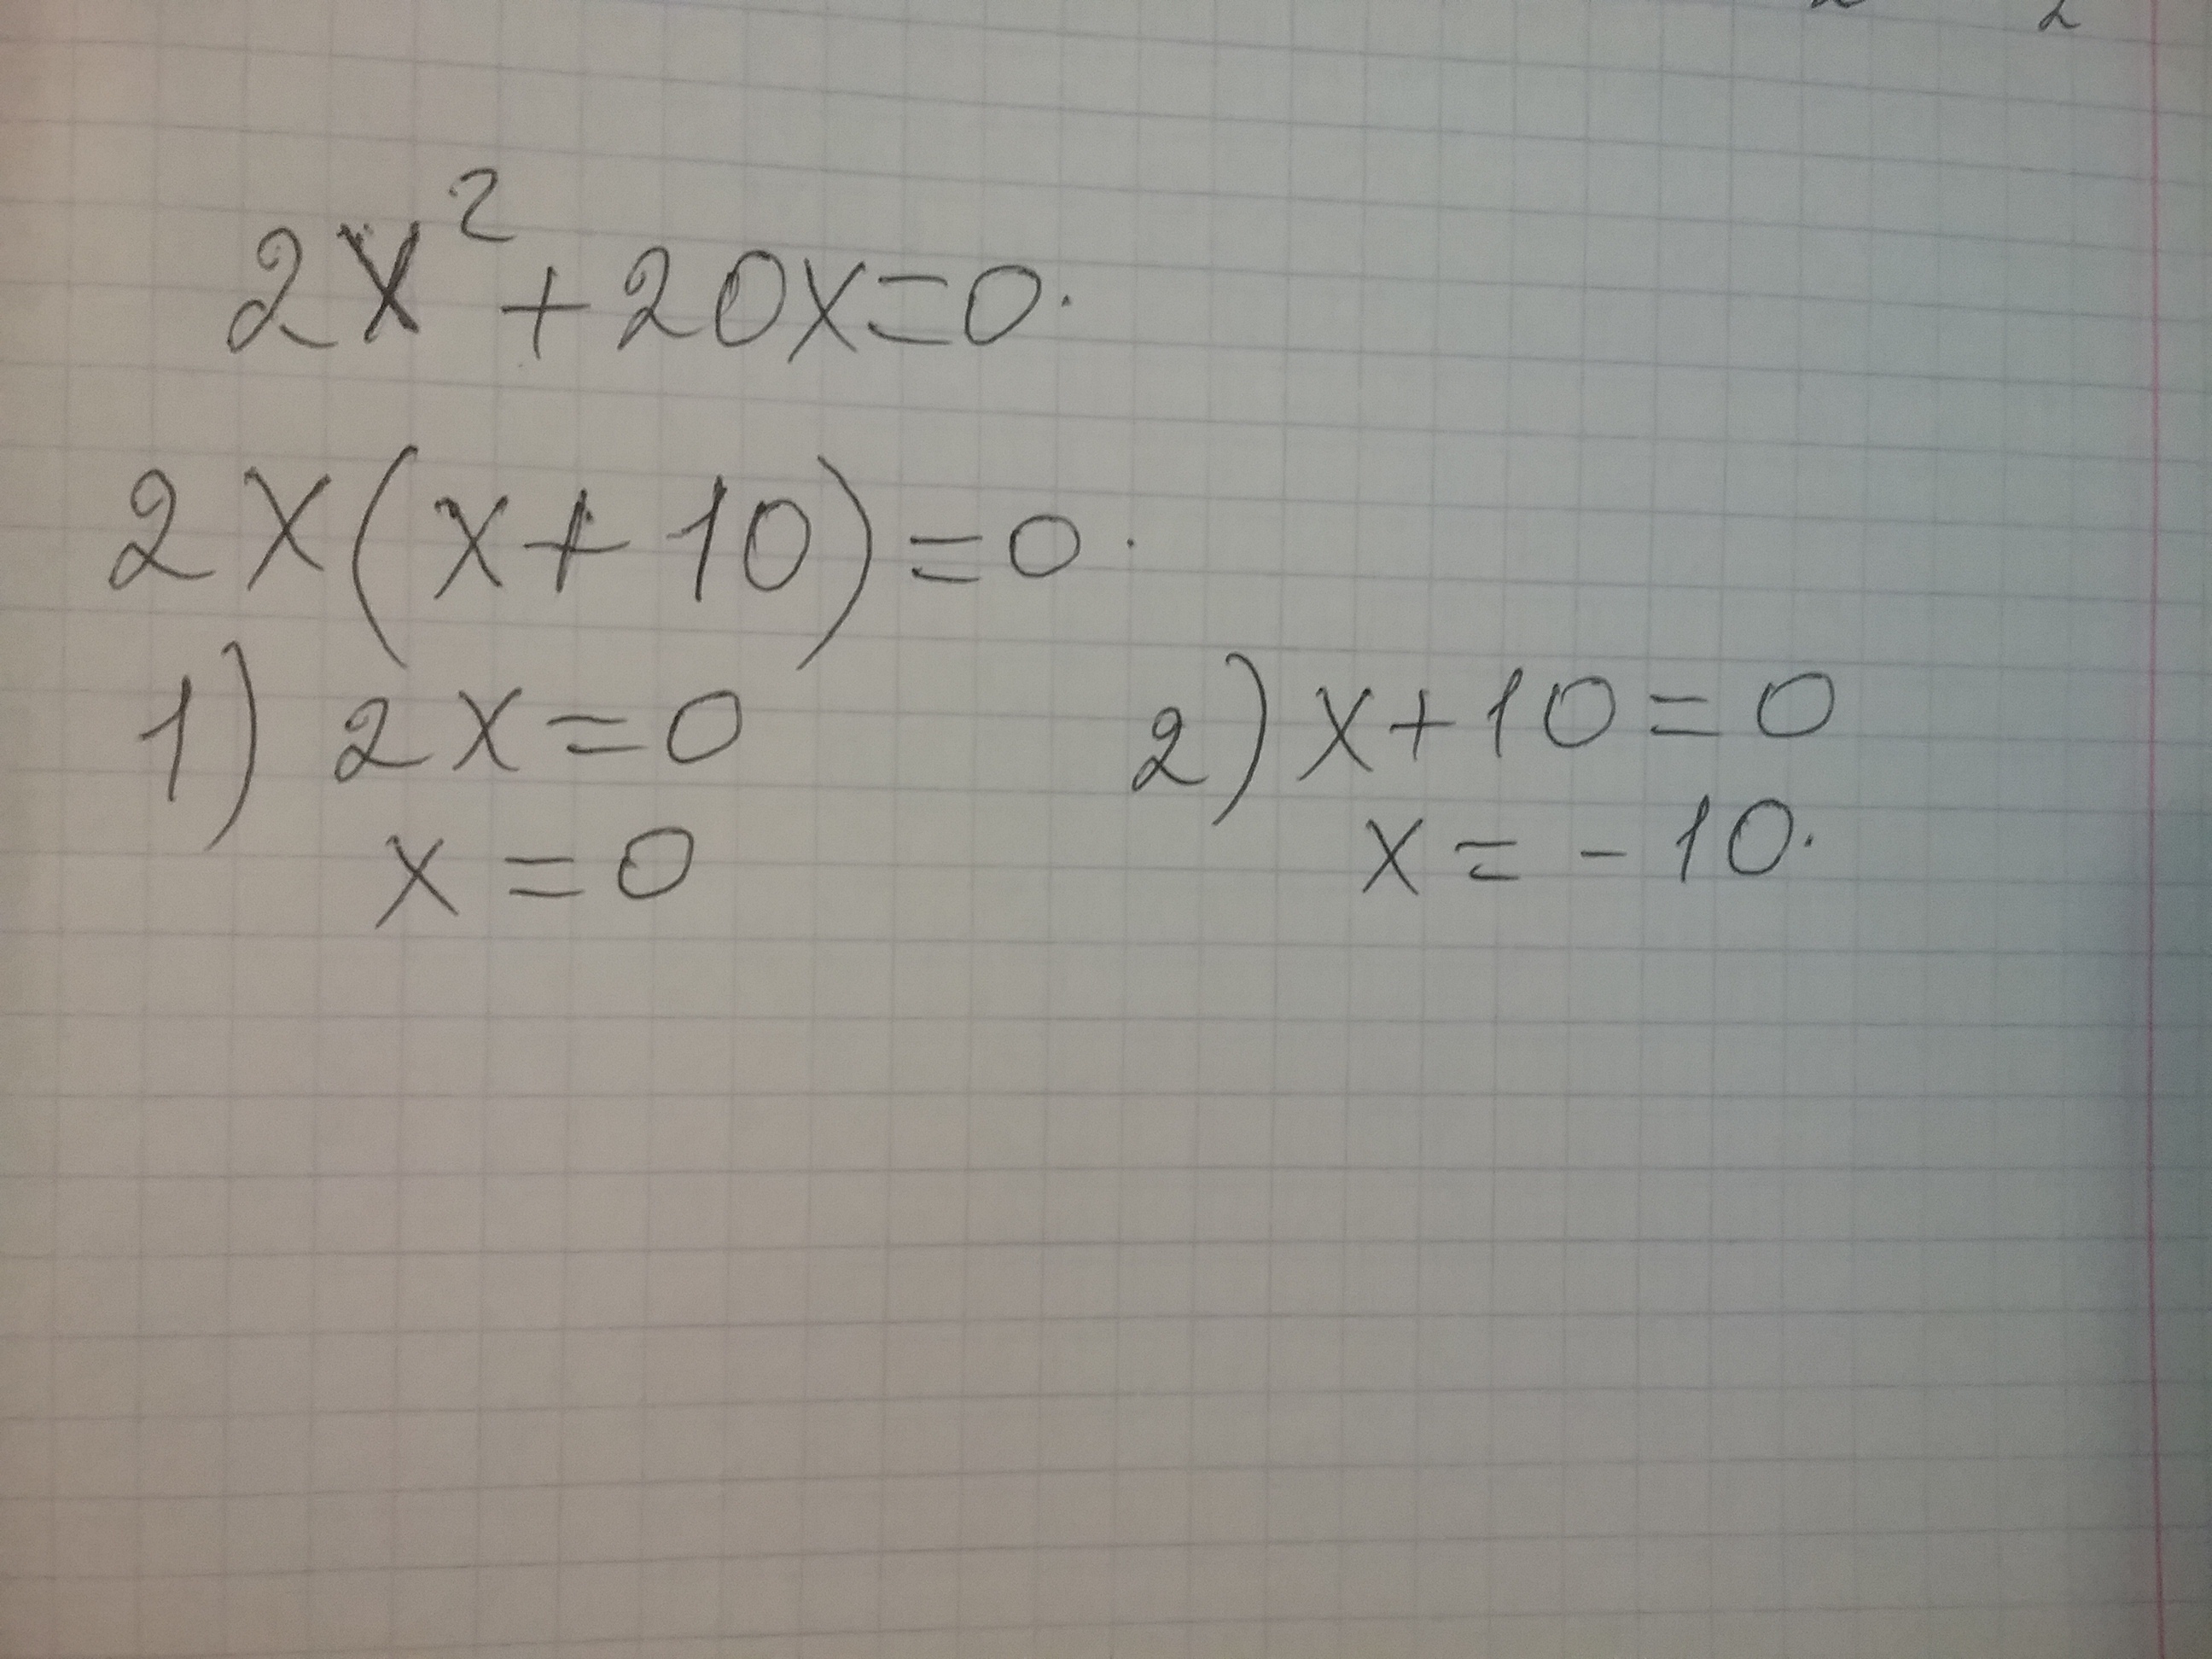 2x² + 20x = 0.
2x(x + 10) = 0.
1) 2x = 0 2) x + 10 = 0
x = 0 x = - 10.